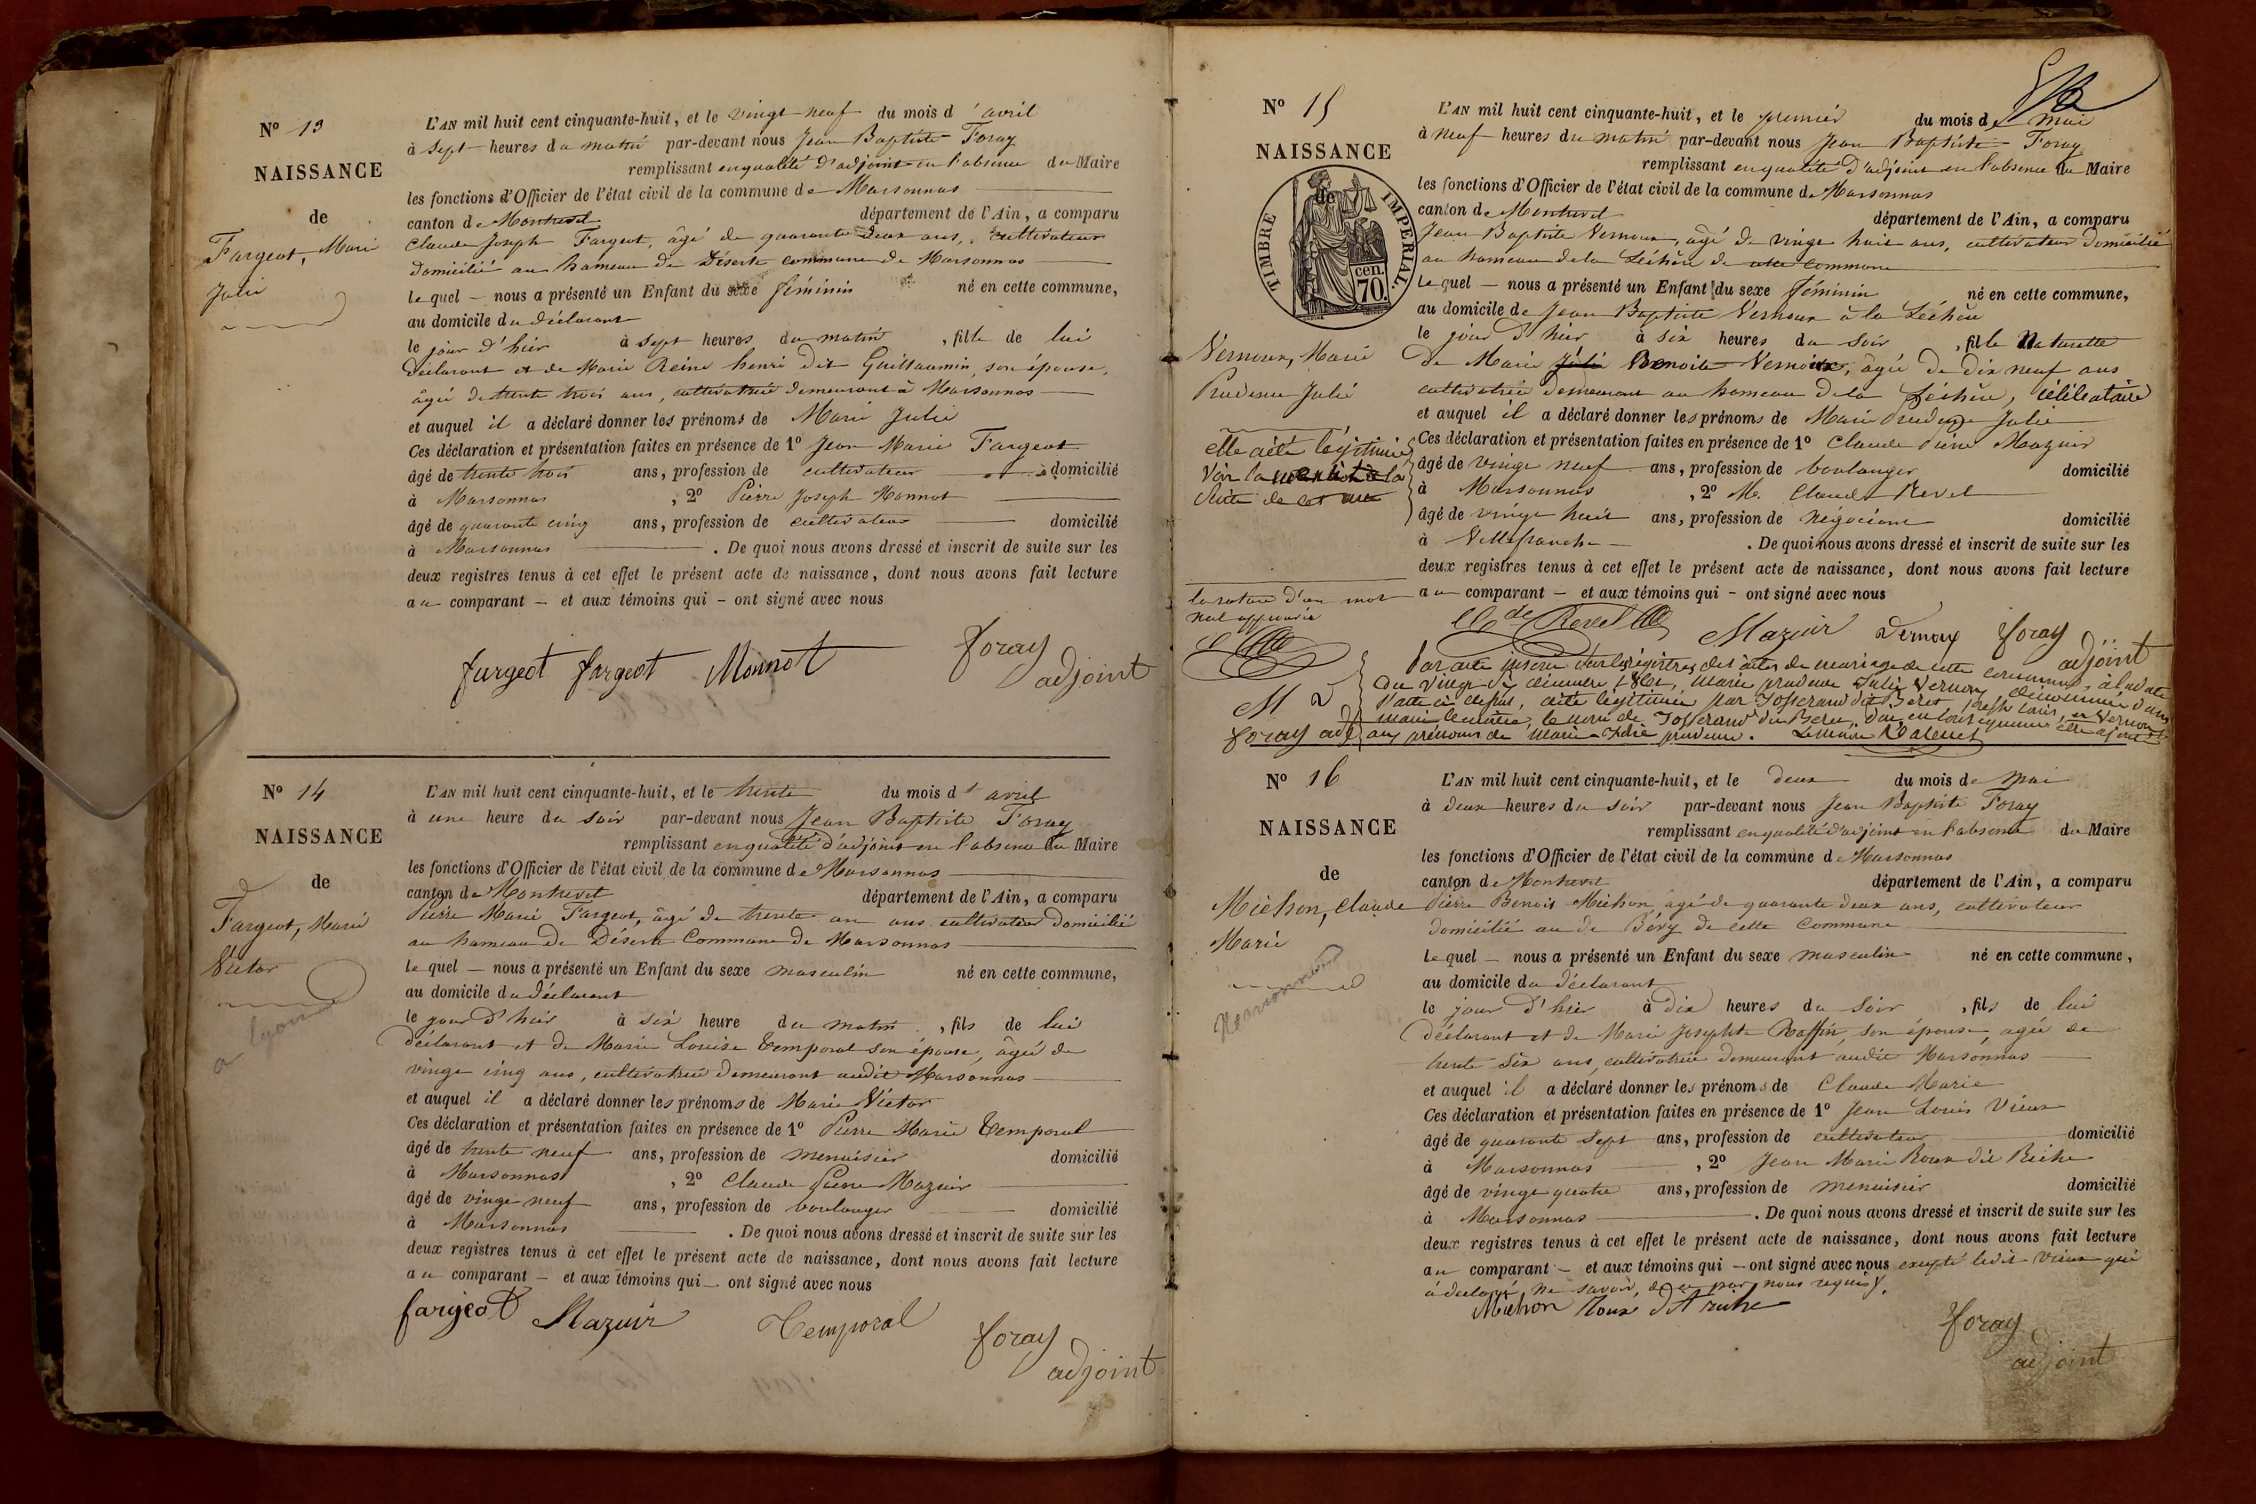 Nº 13
NAISSANCE
de
Fargeot, Marie
Julie
L'AN mil huit cent cinquante-huit, et le vingt neuf du mois d'avril
à sept heures du matin par-devant nous Jean Baptiste Foray
remplissant en qualité d'adjoint en l'absence du Maire
les fonctions d'Officier de l'état civil de la commune de Marsonnas
canton de Montrevel département de l'Ain, a comparu
Claude Joseph Fargeot, âgé de quarante deux ans, cultivateur
domicilié au hameau de Déserts commune de Marsonnas
lequel — nous a présenté un Enfant du sexe féminin né en cette commune,
au domicile du déclarant
le jour d'hier à sept heures du matin, fille de lui
déclarant et de Marie Reine henri dit Guillaumin, son épouse,
âgée de trente trois ans, cultivatrice demeurant à Marsonnas
et auquel il a déclaré donner les prénoms de Marie Julie
Ces déclaration et présentation faites en présence de 1º Jean Marie Fargeot
âgé de trente trois ans, profession de cultivateur domicilié
à Marsonnas, 2º Pierre Joseph Monnot
âgé de quarante cinq ans, profession de cultivateur domicilié
à Marsonnas. De quoi nous avons dressé et inscrit de suite sur les
deux registres tenus à cet effet le présent acte de naissance, dont nous avons fait lecture
au comparant — et aux témoins qui – ont signé avec nous
fargeot fargeot Monnot foray
adjoint
Nº 14
NAISSANCE
de
Fargeot, Marie
Victor
a Lyon
L'AN mil huit cent cinquante-huit, et le trente du mois d'avril
à une heure du soir par-devant nous Jean Baptiste Foray
remplissant en qualité d'adjoint en l'absence du Maire
les fonctions d'Officier de l'état civil de la commune de Marsonnas
canton de Montrevel département de l'Ain, a comparu
Pierre Marie Fargeot, âgé de trente un ans cultivateur domicilié
au hameau de Déserts Commune de Marsonnas
lequel — nous a présenté un Enfant du sexe masculin né en cette commune,
au domicile du déclarant
le jour d'hier à six heure du matin, fils de lui
déclarant et de Marie Louise Temporal son épouse, âgée de
vingt cinq ans, cultivatrice demeurant audit Marsonnas
et auquel il a déclaré donner les prénoms de Marie Victor
Ces déclaration et présentation faites en présence de 1º Pierre Marie Temporal
âgé de trente neuf ans, profession de menuisier domicilié
à Marsonnas, 2º Claude Pierre Mazuir
âgé de vingt neuf ans, profession de boulanger domicilié
à Marsonnas. De quoi nous avons dressé et inscrit de suite sur les
deux registres tenus à cet effet le présent acte de naissance, dont nous avons fait lecture
au comparant — et aux témoins qui — ont signé avec nous
fargeot Mazuir Temporal foray
adjoint
Nº 15
NAISSANCE
de
TIMBRE IMPERIAL.
70. cen.
Vernoux, Marie
Prudence Julie
elle a été légitimée
Voir la mention à la
suite de cet acte
la rature d'un mot
nul approuvée
M V
foray adj
L'AN mil huit cent cinquante-huit, et le premier du mois de mai
à neuf heures du matin par-devant nous Jean Baptiste Foray
remplissant en qualité d'adjoint en l'absence du Maire
les fonctions d'Officier de l'état civil de la commune de Marsonnas
canton de Montrevel département de l'Ain, a comparu
Jean Baptiste Vernoux, âgé de vingt huit ans, cultivateur domicilié
au hameau de la Léchère de cette commune
lequel — nous a présenté un Enfant du sexe féminin né en cette commune,
au domicile de Jean Baptiste Vernoux à la Léchère
le jour d'hier à six heures du soir, fille Naturelle
de Marie Julie Benoite Vernoux, âgée de dix neuf ans
cultivatrice demeurant au hameau de la Léchère, célibataire
et auquel il a déclaré donner les prénoms de Marie Prudence Julie
Ces déclaration et présentation faites en présence de 1º Claude Pierre Mazuir
âgé de vingt neuf ans, profession de boulanger domicilié
à Marsonnas, 2º M. Claude Revel
âgé de vingt huit ans, profession de négociant domicilié
à Villefranche. De quoi nous avons dressé et inscrit de suite sur les
deux registres tenus à cet effet le présent acte de naissance, dont nous avons fait lecture
au comparant — et aux témoins qui – ont signé avec nous
Cde Revel Mazuir Vernoux foray
adjoint
Par acte inscrit sur les registres des actes de mariage de cette commune, à la date
du vingt décembre 1861, Marie prudence Julie Vernoux, dénommée dans
l'acte ci dessus, a été légitimée par Josserand dit Beret
aux prénoms de Marie Julie prudence. Le Maire
Nº 16
NAISSANCE
de
Michon, Claude
Marie
L'AN mil huit cent cinquante-huit, et le deux du mois de mai
à deux heures du soir par-devant nous Jean Baptiste Foray
remplissant en qualité d'adjoint en l'absence du Maire
les fonctions d'Officier de l'état civil de la commune de Marsonnas
canton de Montrevel département de l'Ain, a comparu
Pierre Benoit Michon âgé de quarante deux ans, cultivateur
domicilié au de Béry de cette Commune
lequel — nous a présenté un Enfant du sexe masculin né en cette commune,
au domicile du déclarant
le jour d'hier à dix heures du soir, fils de lui
déclarant et de Marie Josephte Raffin, son épouse, âgée de
trente six ans, cultivatrice demeurant audit Marsonnas
et auquel il a déclaré donner les prénoms de Claude Marie
Ces déclaration et présentation faites en présence de 1º Jean Louis Vieux
âgé de quarante sept ans, profession de cultivateur domicilié
à Marsonnas, 2º Jean Marie Roux dit Riche
âgé de vingt quatre ans, profession de menuisier domicilié
à Marsonnas. De quoi nous avons dressé et inscrit de suite sur les
deux registres tenus à cet effet le présent acte de naissance, dont nous avons fait lecture
au comparant — et aux témoins qui — ont signé avec nous excepté ledit Vieux qui
a déclaré ne savoir, de ce par nous requis.
Michon Roux dit riche foray
adjoint